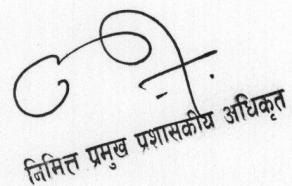 निमित्त प्रमुख प्रशासकीय अधिकृत